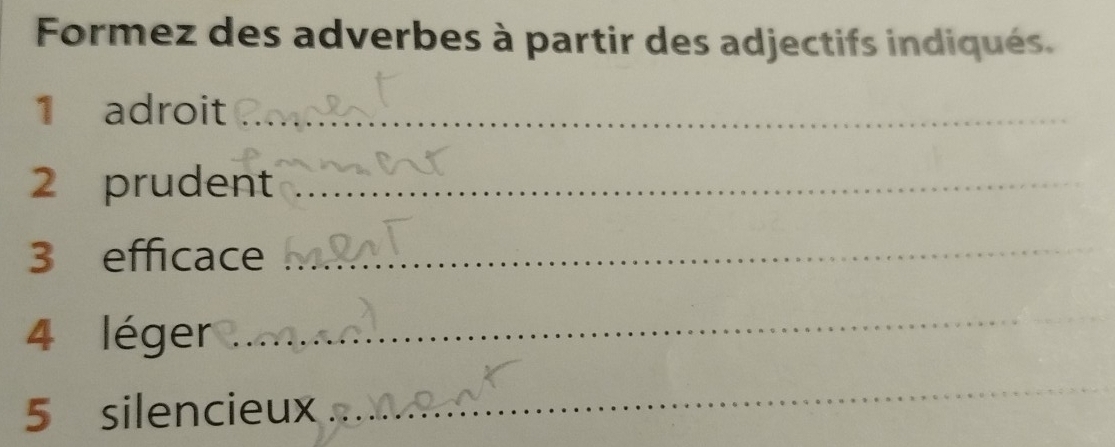 Formez des adverbes à partir des adjectifs indiqués.
1 adroit ement
2 prudent emment
3 efficace ment
4 léger ement
5 silencieux